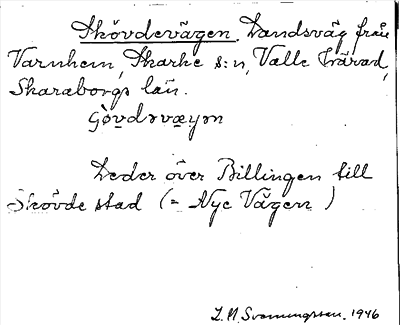 Skövdevägen. Landsväg från
Varnhem, Skarke s:n, Valle härad,
Skaraborgs län.
Leder över Billingen till
Skövde stad (= Nye Vägen)
1946